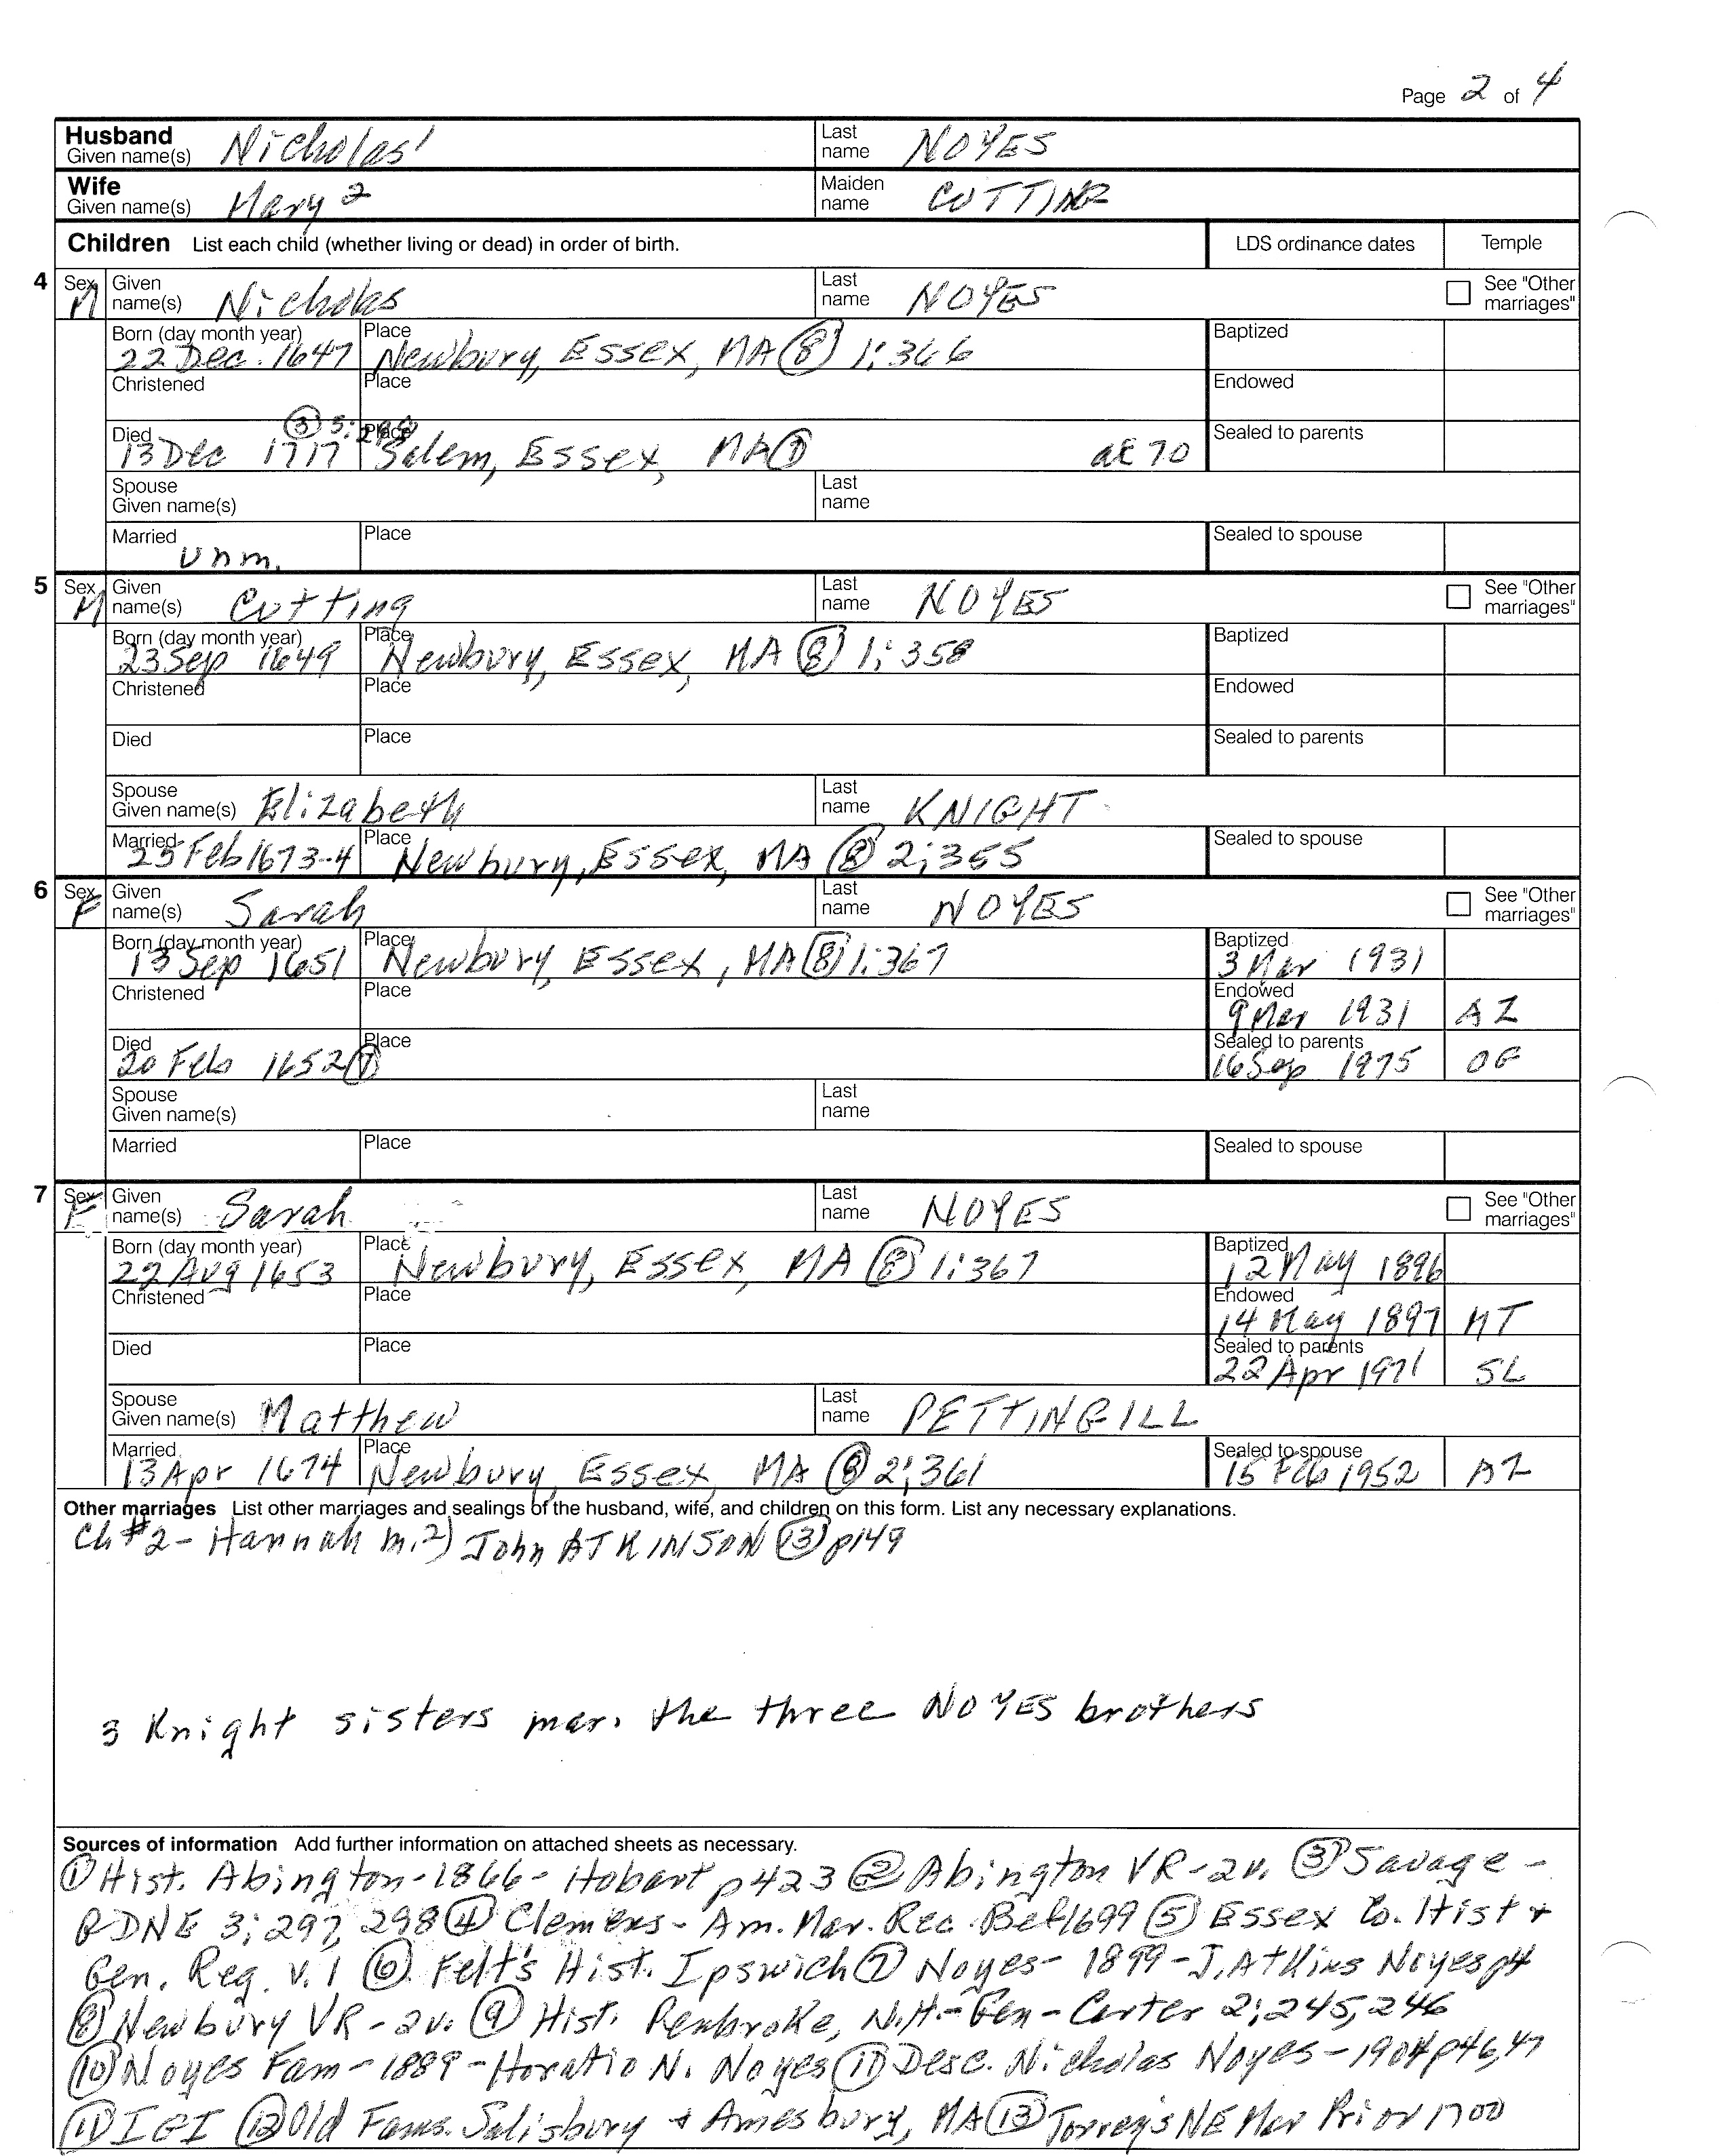 Page 2 of 4
Husband Given name(s) Nicholas¹ Last name NOYES
Wife Given name(s) Mary 2 Maiden name CUTTING
Children List each child (whether living or dead) in order of birth. LDS ordinance dates Temple
4 Sex M Given name(s) Nicholas Last name NOYES See "Other marriages"
Born (day month year) 22 Dec. 1647 Place Newbury, Essex, MA (8) 1:366 Baptized
Christened Place Endowed
Died 13 Dec 1717 (3) Place Salem, Essex, MA (7) ae 70 Sealed to parents
Spouse Given name(s) Last name
Married unm. Place Sealed to spouse
5 Sex M Given name(s) Cutting Last name NOYES See "Other marriages"
Born (day month year) 23 Sep 1649 Place Newbury, Essex, MA (8) 1:358 Baptized
Christened Place Endowed
Died Place Sealed to parents
Spouse Given name(s) Elizabeth Last name KNIGHT
Married 25 Feb 1673-4 Place Newbury, Essex, MA (8) 2:355 Sealed to spouse
6 Sex F Given name(s) Sarah Last name NOYES See "Other marriages"
Born (day month year) 13 Sep 1651 Place Newbury, Essex, MA (8) 1:367 Baptized 3 Mar 1931
Christened Place Endowed 9 Mar 1931 AZ
Died 20 Feb 1652 (7) Place Sealed to parents 16 Sep 1975 OG
Spouse Given name(s) Last name
Married Place Sealed to spouse
7 Sex F Given name(s) Sarah Last name NOYES See "Other marriages"
Born (day month year) 22 Aug 1653 Place Newbury, Essex, MA (8) 1:367 Baptized 12 May 1896
Christened Place Endowed 14 May 1897 MT
Died Place Sealed to parents 22 Apr 1971 SL
Spouse Given name(s) Matthew Last name PETTINGILL
Married 13 Apr 1674 Place Newbury, Essex, MA (8) 2:361 Sealed to spouse 15 Feb 1952 AZ
Other marriages List other marriages and sealings of the husband, wife, and children on this form. List any necessary explanations.
Ch #2 - Hannah m. 2) John ATKINSON (13) p149
3 Knight sisters mar. the three NOYES brothers
Sources of information Add further information on attached sheets as necessary.
(1) Hist. Abington - 1866 - Hobart p423 (2) Abington VR - 2v. (3) Savage -
GDNE 3:297, 298 (4) Clemens - Am. Mar. Rec. Bef 1699 (5) Essex Co. Hist +
Gen. Reg. v. 1 (6) Felt's Hist. Ipswich (7) Noyes - 1899 - J. Atkins Noyes p4
(8) Newbury VR - 2v. (9) Hist. Pembroke, N.H. - Gen - Carter 2:245,246
(10) Noyes Fam - 1889 - Horatio N. Noyes (11) Desc. Nicholas Noyes - 1904 p46,47
(11) IGI (12) Old Fams. Salisbury + Amesbury, MA (13) Torrey's NE Mar Prior 1700